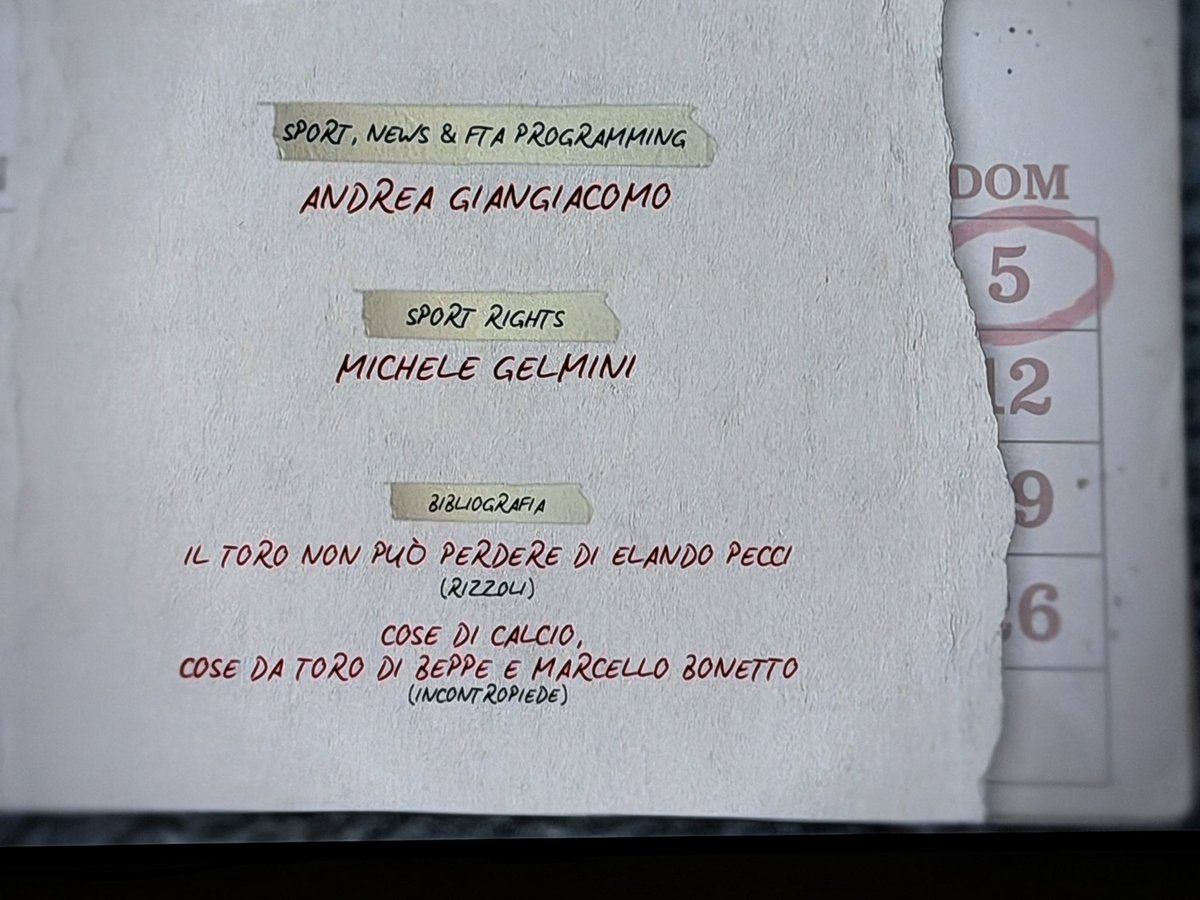 SPORT, NEWS & FTA PROGRAMMING
ANDREA GIANGIACOMO
SPORT RIGHTS
MICHELE GELMINI
BIBLIOGRAFIA
IL TORO NON PUÒ PERDERE DI ELANDO PECCI
(RIZZOLI)
COSE DI CALCIO,
COSE DA TORO DI BEPPE E MARCELLO BONETTO
(INCONTROPIEDE)
DOM
5
12
9
26